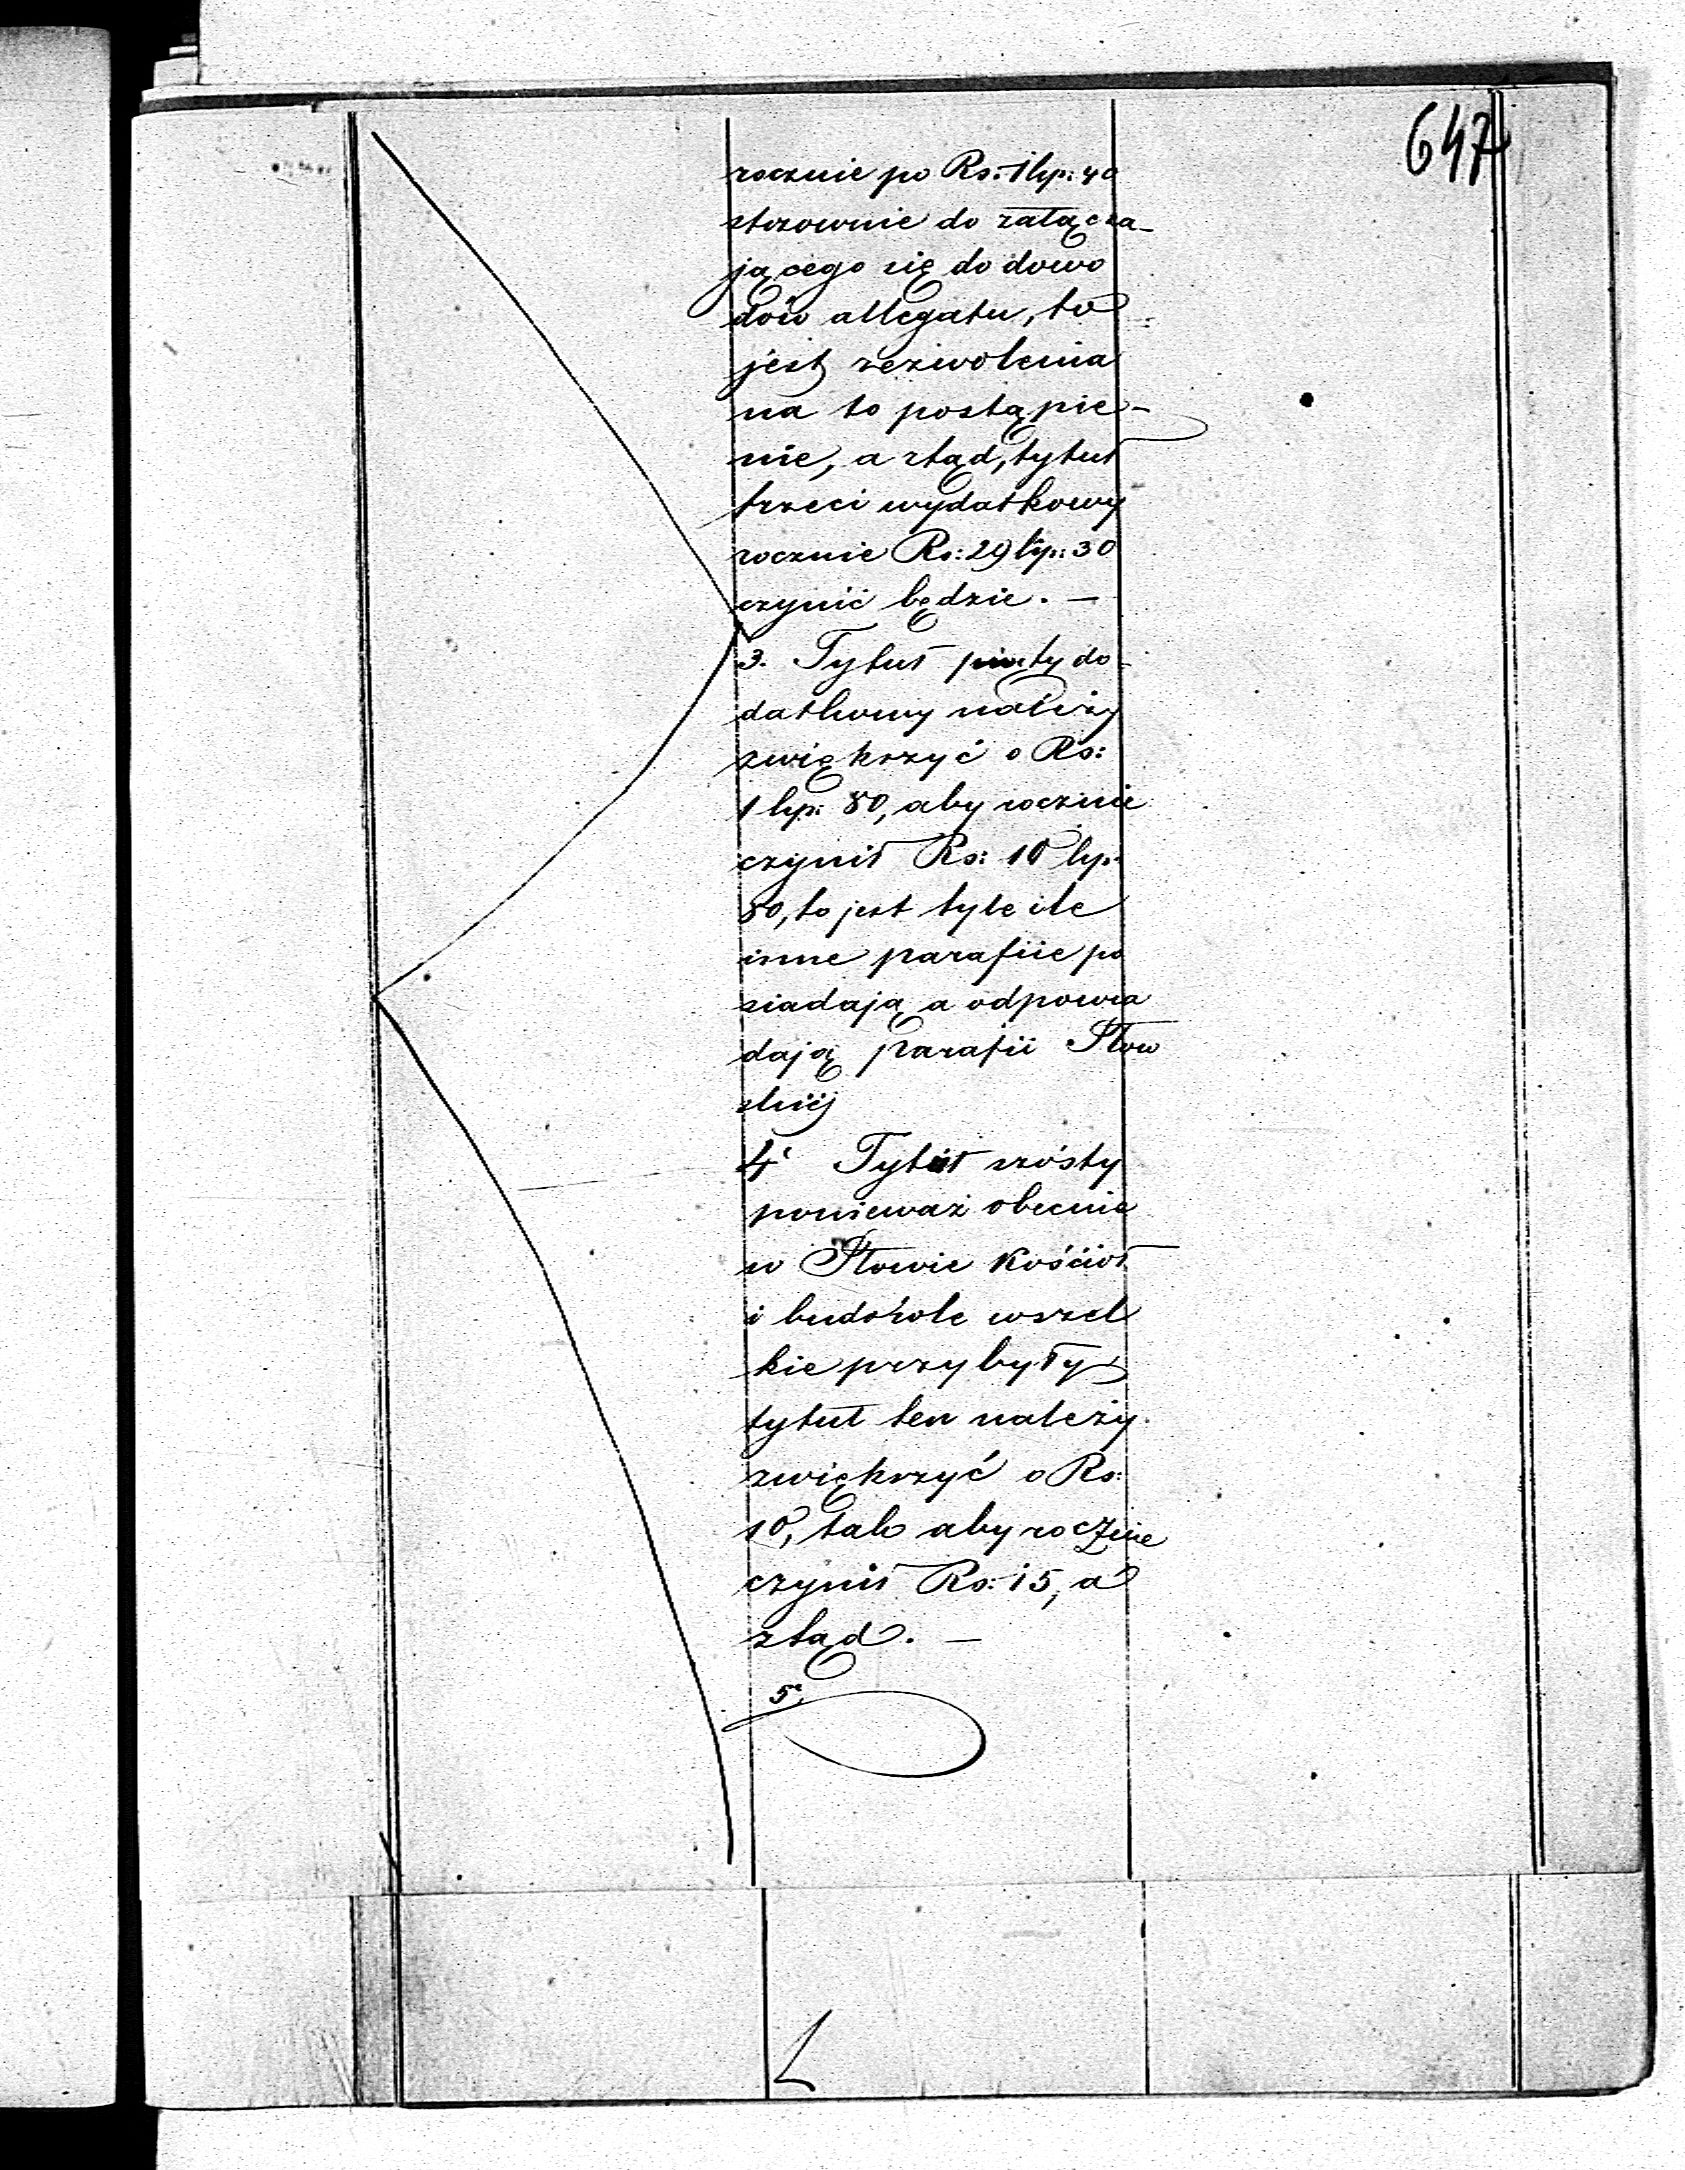 647
rocznie po Rs: 1 kp: 40
stosownie do załącza-
jącego się do dowo
dów allegatu, to
jest zezwolenia
na to postąpie-
nie, a ztąd, tytuł
trzeci wydatkowy
rocznie Rs: 29 kp: 30
czynić będzie. —
3. Tytuł piąty do-
datkowy należy
zwiększyć o Rs:
1 kp: 80, aby rocznie
czynił Rs: 10 kp:
80, to jest tyle ile
inne parafiie po
siadają a odpowia
dają parafii Iłow
skiéj
4. Tytuł szósty
ponieważ obecnie
w Iłowie Kościoł
i budowle wszel
kie przybyły,
tytuł ten należy
zwiększyć o Rs:
10, tak aby rocznie
czynił Rs: 15, a
ztąd. —
5.